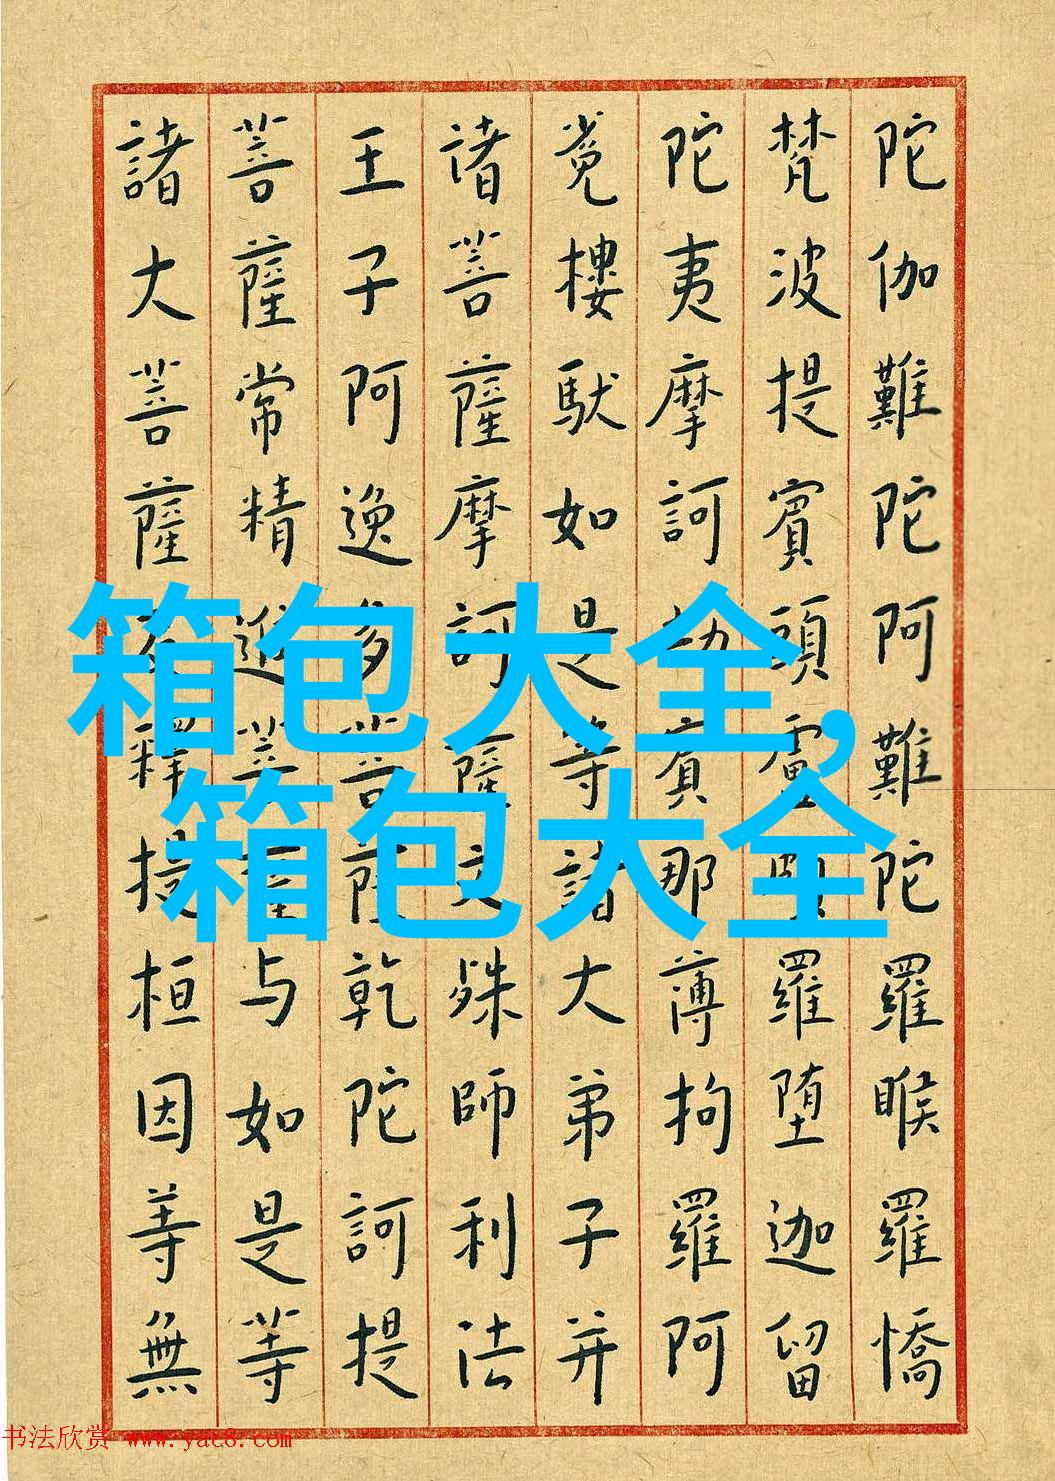 陀伽難陀阿難陀羅睺羅憍
梵波提賓頭盧頗羅堕迦留
陀夷摩訶劫賓那薄拘羅阿
樓馱如是等諸大弟子并
诸菩薩摩訶薩文殊師利法
王子阿逸多菩薩乾陀訶提
菩薩常精進菩薩与如是等
諸大菩薩及釋提桓因等無
箱包大全,
箱包大全
书法欣赏 www.yac8.com